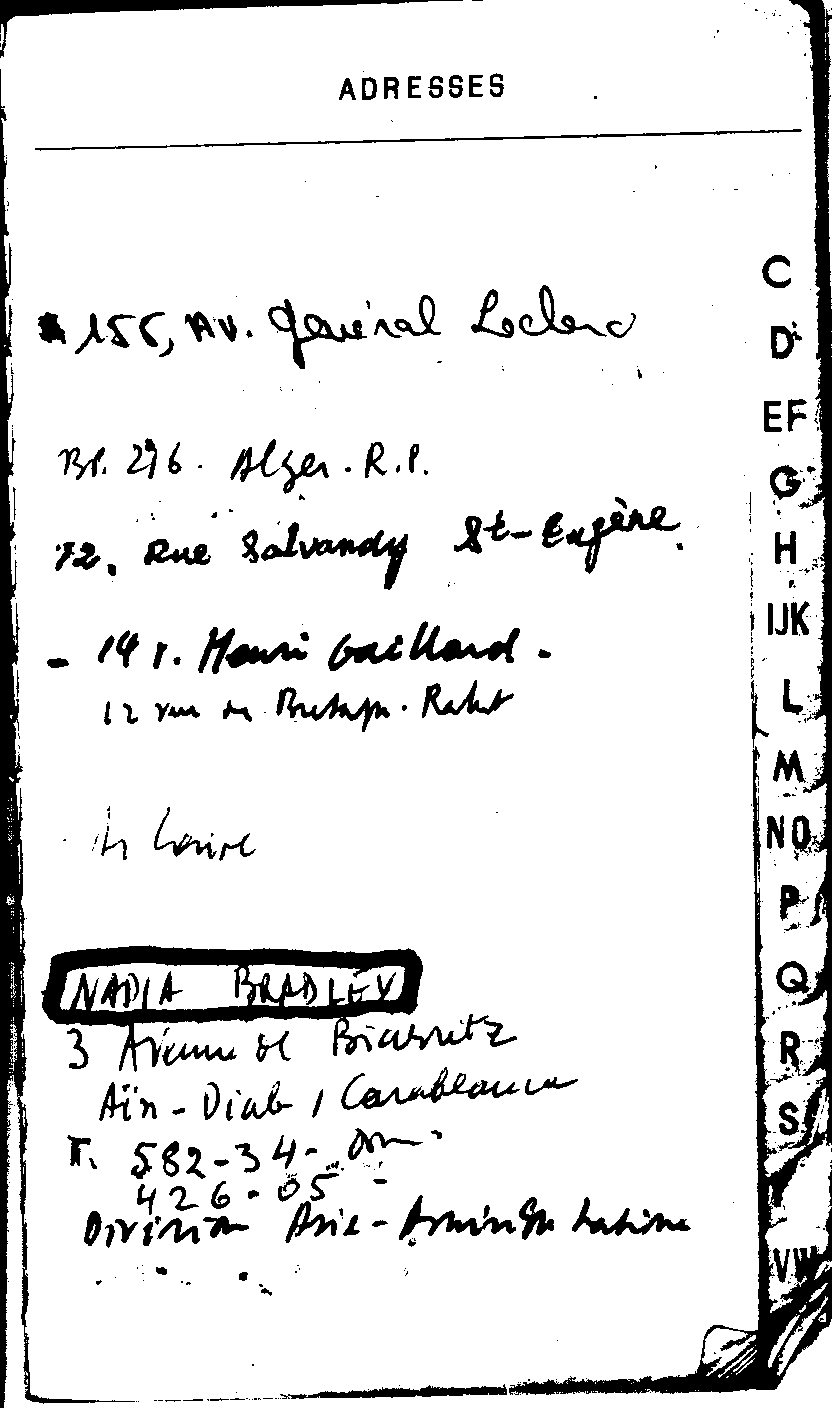 ADRESSES
155, AV. Général Leclerc
BP. 276. Alger. R.P.
72, Rue Salvandy St-Eugène
- 14 r. Henri Gaillard -
12 rue de Bretagne. Rabat
NADIA BRADLEY
3 Avenue de Biarritz
Aïn-Diab / Casablanca
T. 582-34-
426-05-
Division Asie-Amérique Latine
C
D
EF
G
H
IJK
L
M
NO
P
Q
R
S
VW